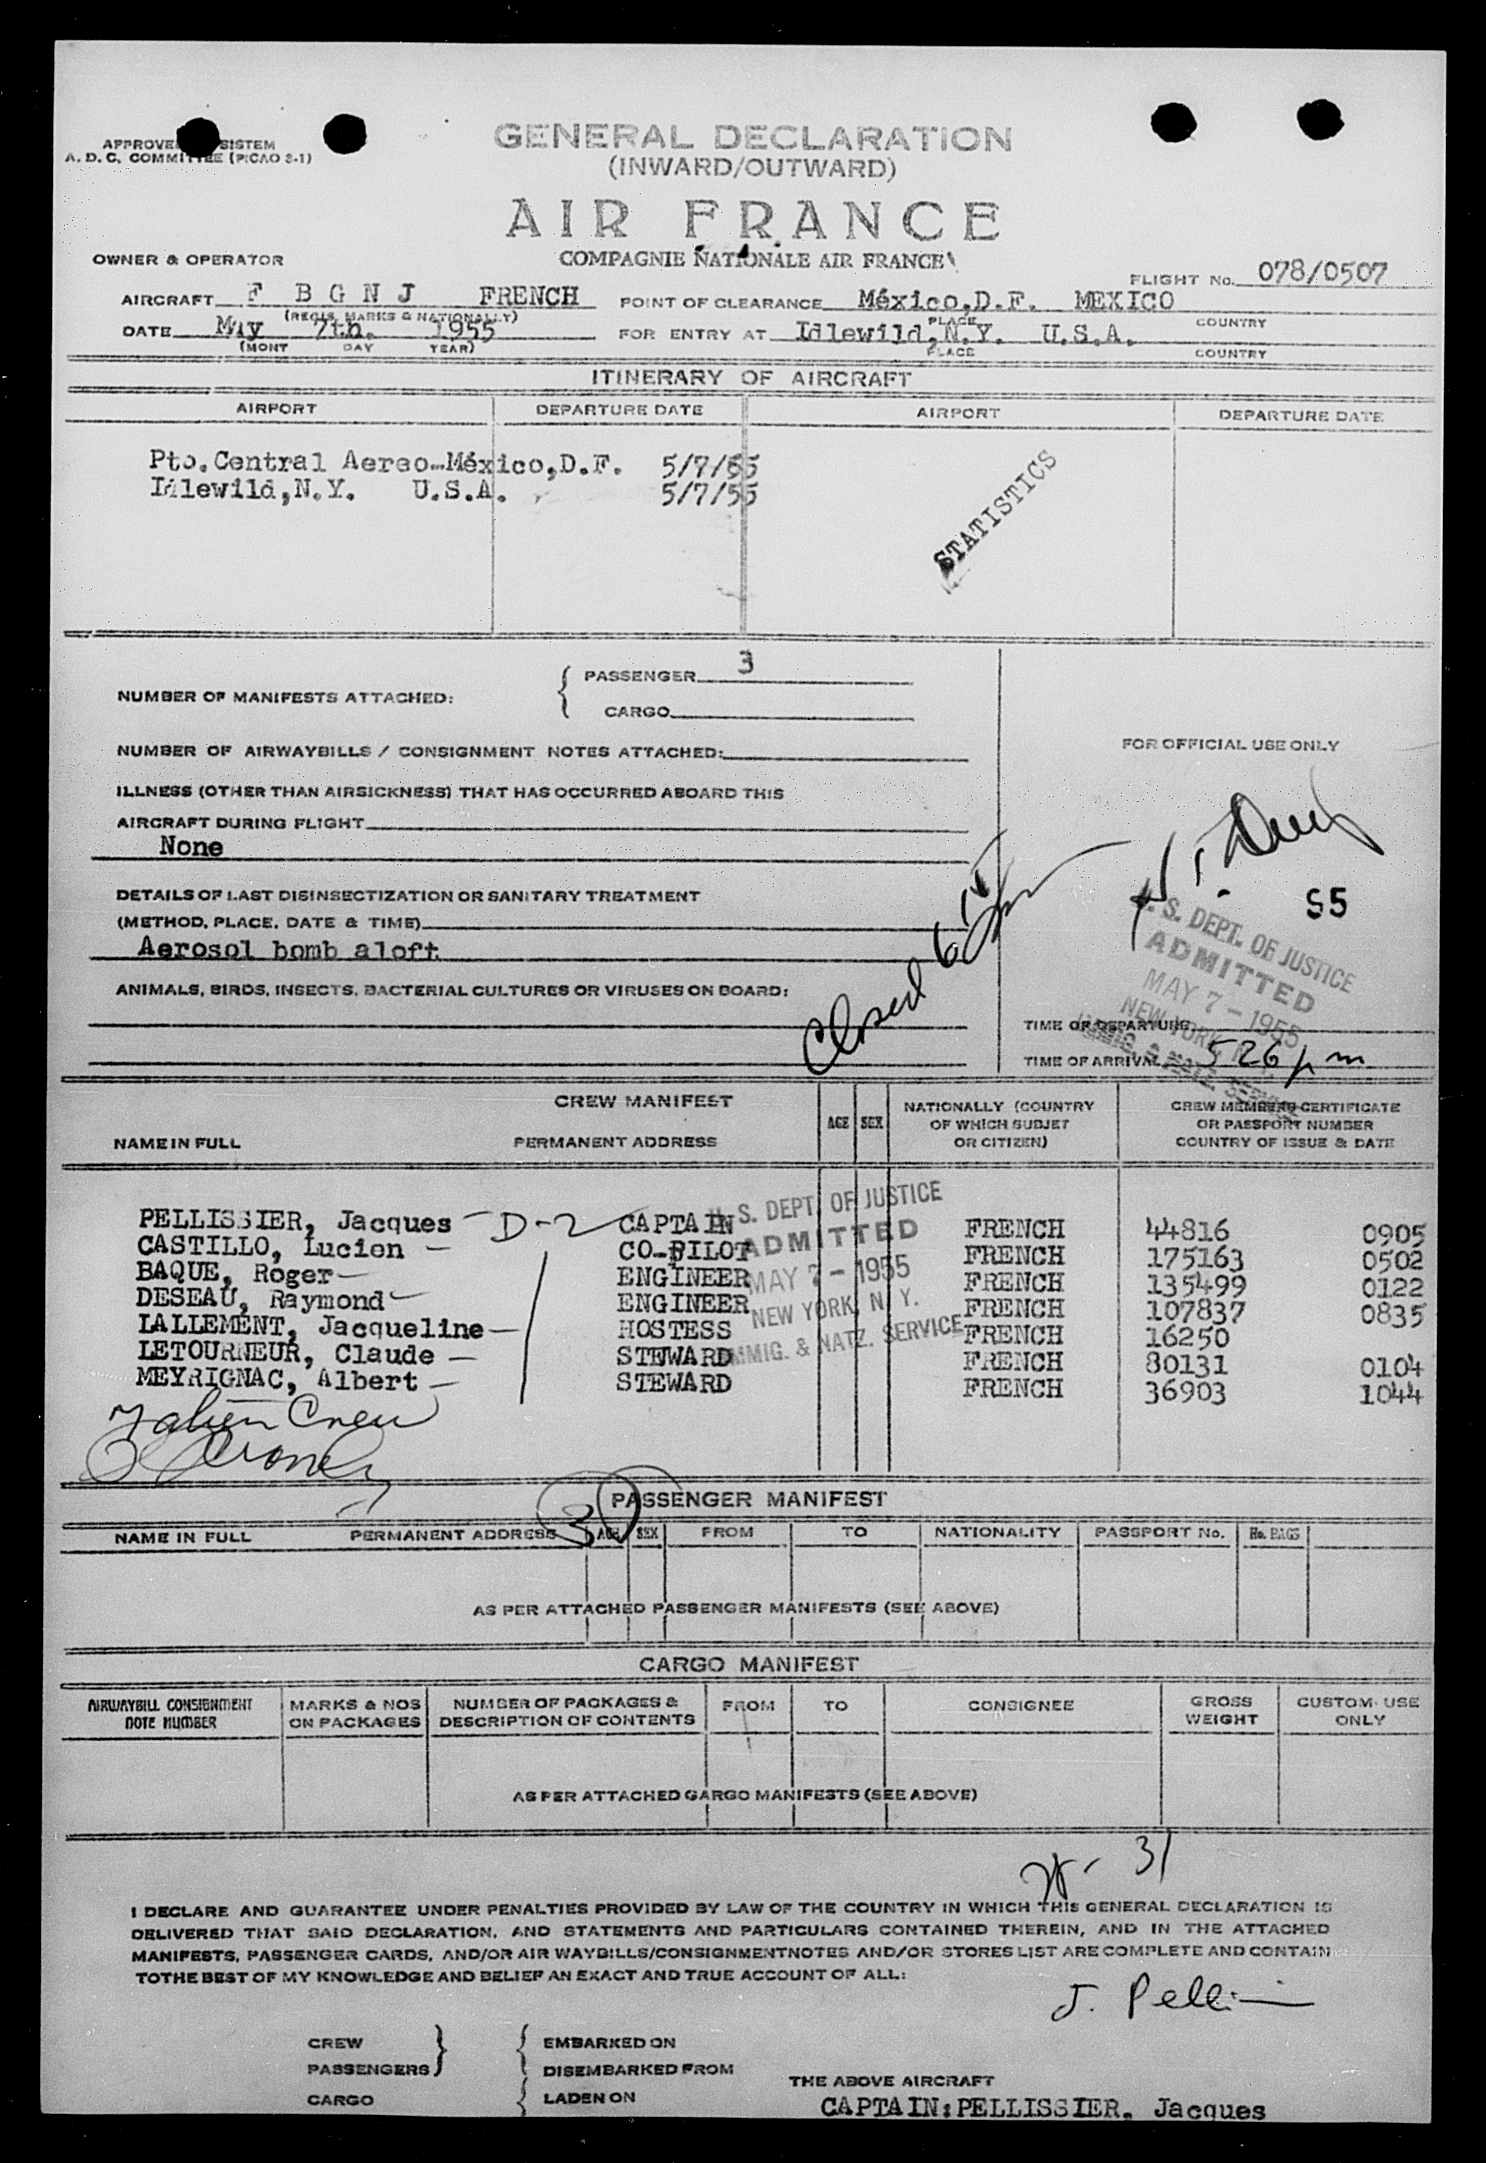 GENERAL DECLARATION
(INWARD/OUTWARD)
A. D. C. COMMITTEE (PICAO 2-1)
AIR FRANCE
COMPAGNIE NATIONALE AIR FRANCE
OWNER & OPERATOR
FLIGHT No. 078/0507
AIRCRAFT F B G N J FRENCH POINT OF CLEARANCE México,D.F. MEXICO
(REGIS. MARKS & NATIONALLY) PLACE COUNTRY
DATE May 7th. 1955 FOR ENTRY AT Idlewild,N.Y. U.S.A.
(MONT DAY YEAR) PLACE COUNTRY
ITINERARY OF AIRCRAFT
AIRPORT DEPARTURE DATE AIRPORT DEPARTURE DATE
Pto.Central Aereo-México,D.F. 5/7/55
Idlewild,N.Y. U.S.A. 5/7/55
STATISTICS
PASSENGER 3
NUMBER OF MANIFESTS ATTACHED:
CARGO
NUMBER OF AIRWAYBILLS / CONSIGNMENT NOTES ATTACHED:
FOR OFFICIAL USE ONLY
ILLNESS (OTHER THAN AIRSICKNESS) THAT HAS OCCURRED ABOARD THIS
AIRCRAFT DURING FLIGHT
None
DETAILS OF LAST DISINSECTIZATION OR SANITARY TREATMENT
(METHOD, PLACE, DATE & TIME)
Aerosol bomb aloft
ANIMALS, BIRDS, INSECTS, BACTERIAL CULTURES OR VIRUSES ON BOARD:
Closed
55
U. S. DEPT. OF JUSTICE
ADMITTED
MAY 7 - 1955
NEW YORK, N. Y.
IMMIG. & NATZ. SERVICE
TIME OF DEPARTURE
TIME OF ARRIVAL 5 26 pm
CREW MANIFEST
NAME IN FULL PERMANENT ADDRESS AGE SEX
NATIONALLY (COUNTRY
OF WHICH SUBJET
OR CITIZEN)
CREW MEMBERS CERTIFICATE
OR PASSPORT NUMBER
COUNTRY OF ISSUE & DATE
PELLISSIER, Jacques D-2 CAPTAIN FRENCH 44816 0905
CASTILLO, Lucien CO-PILOT FRENCH 175163 0502
BAQUE, Roger ENGINEER FRENCH 135499 0122
DESEAU, Raymond ENGINEER FRENCH 107837 0835
LALLEMENT, Jacqueline HOSTESS FRENCH 16250
LETOURNEUR, Claude STEWARD FRENCH 80131 0104
MEYRIGNAC, Albert STEWARD FRENCH 36903 1044
U. S. DEPT. OF JUSTICE
ADMITTED
MAY 7 - 1955
NEW YORK, N. Y.
IMMIG. & NATZ. SERVICE
7 alien Crew
3
PASSENGER MANIFEST
NAME IN FULL PERMANENT ADDRESS AGE SEX FROM TO NATIONALITY PASSPORT No. No. BAGS
AS PER ATTACHED PASSENGER MANIFESTS (SEE ABOVE)
CARGO MANIFEST
AIRWAYBILL CONSIGNMENT
NOTE NUMBER
MARKS & NOS
ON PACKAGES
NUMBER OF PACKAGES &
DESCRIPTION OF CONTENTS
FROM TO CONSIGNEE
GROSS
WEIGHT
CUSTOM USE
ONLY
AS PER ATTACHED CARGO MANIFESTS (SEE ABOVE)
31
I DECLARE AND GUARANTEE UNDER PENALTIES PROVIDED BY LAW OF THE COUNTRY IN WHICH THIS GENERAL DECLARATION IS
DELIVERED THAT SAID DECLARATION, AND STATEMENTS AND PARTICULARS CONTAINED THEREIN, AND IN THE ATTACHED
MANIFESTS, PASSENGER CARDS, AND/OR AIR WAYBILLS/CONSIGNMENTNOTES AND/OR STORES LIST ARE COMPLETE AND CONTAIN
TOTHE BEST OF MY KNOWLEDGE AND BELIEF AN EXACT AND TRUE ACCOUNT OF ALL:
J. Pelli
CREW EMBARKED ON
PASSENGERS DISEMBARKED FROM
THE ABOVE AIRCRAFT
CARGO LADEN ON
CAPTAIN:PELLISSIER, Jacques